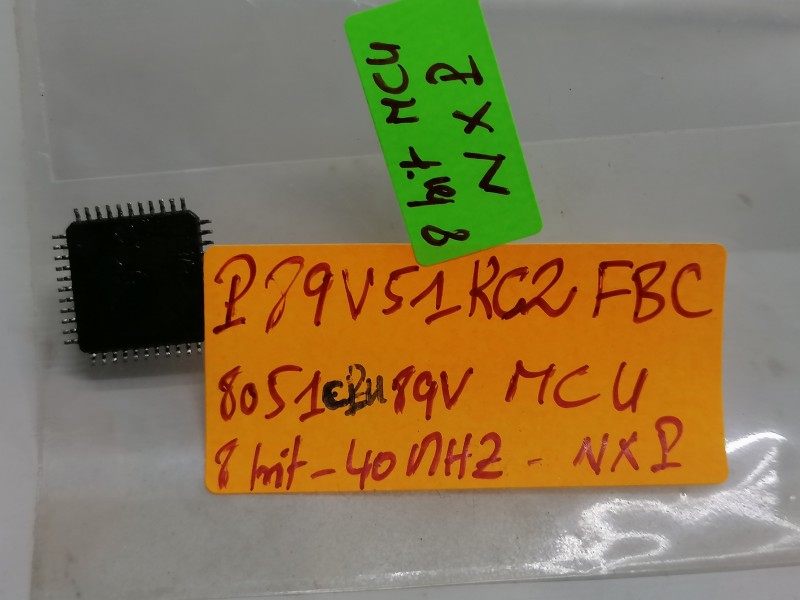 8 bit MCU
NXP
P89V51RC2FBC
8051 CPU 89V MCU
8 bit - 40MHZ - NXP